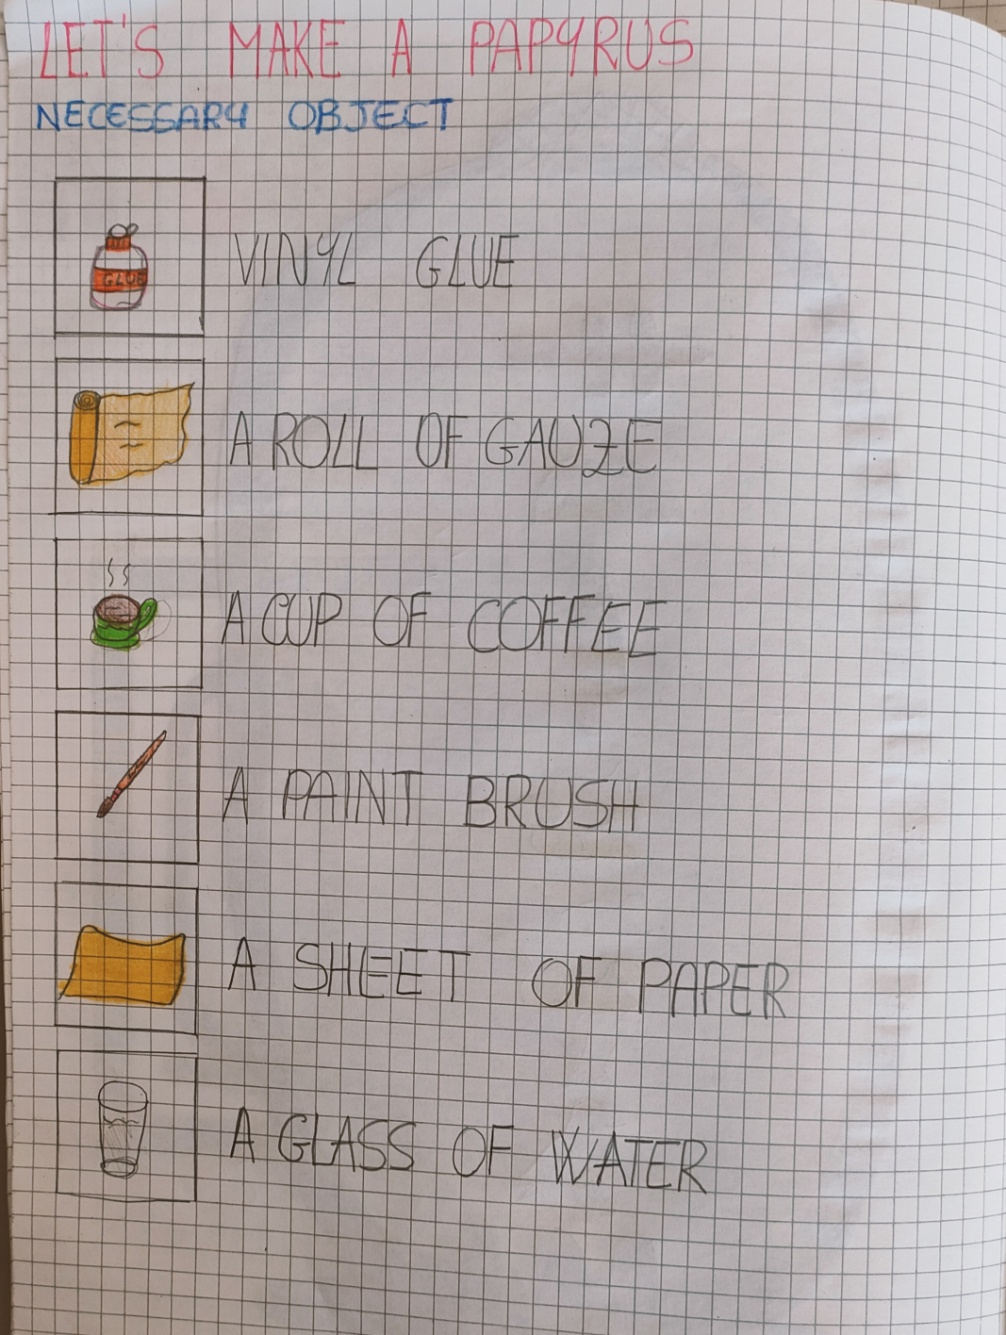 LET'S MAKE A PAPYRUS
NECESSARY OBJECT
GLUE
VINYL GLUE
A ROLL OF GAUZE
A CUP OF COFFEE
A PAINT BRUSH
A SHEET OF PAPER
A GLASS OF WATER